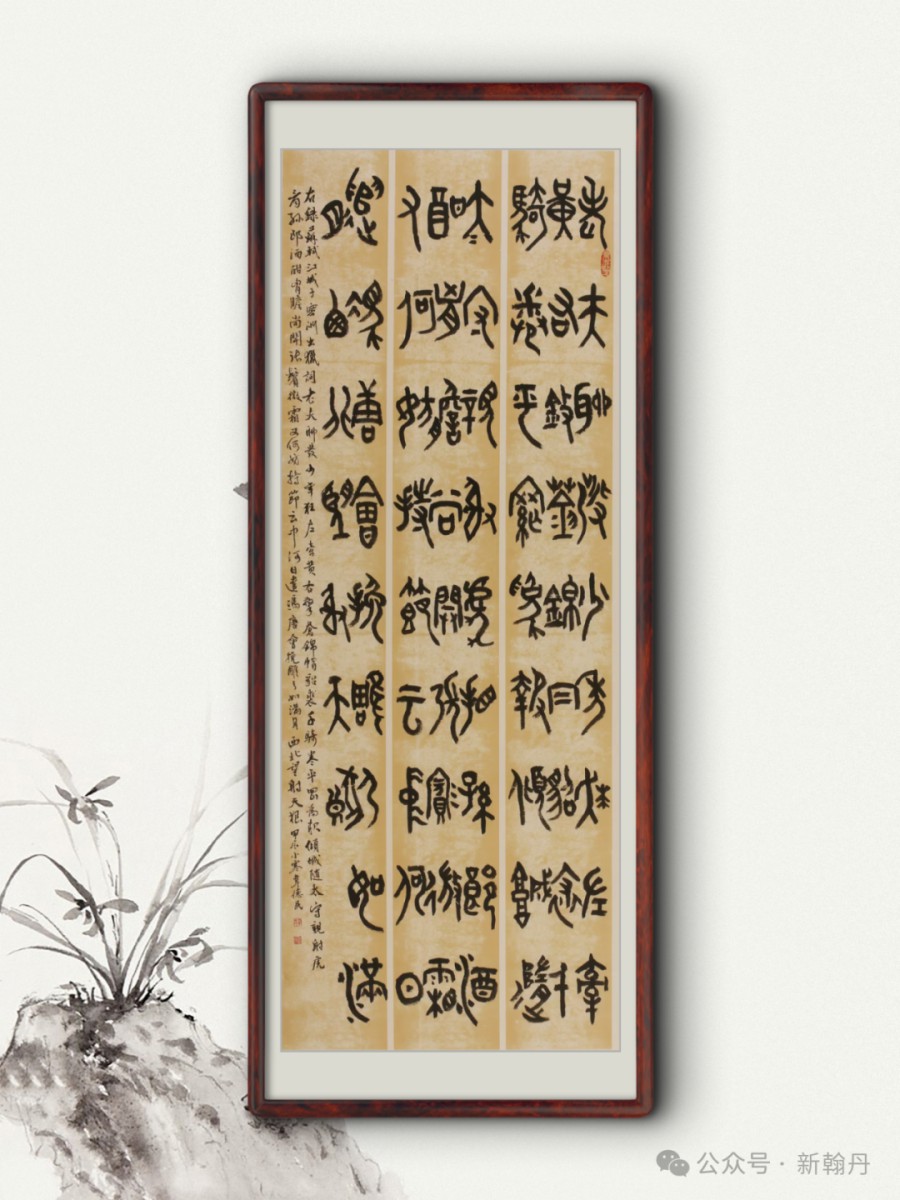 老夫聊發少年狂左牽
黃右擎蒼錦帽貂裘千
騎卷平岡為報傾城隨
太守親射虎看孫郎酒
酣胸膽尚開張鬢微霜
又何妨持節云中何日
遣馮唐會挽雕弓如滿
月西北望射天狼
右錄蘇軾江城子密州出獵詞老夫聊發少年狂左牽黃右擎蒼錦帽貂裘千騎卷平岡為報傾城隨太守親射虎
看孫郎酒酣胸膽尚開張鬢微霜又何妨持節云中何日遣馮唐會挽雕弓如滿月西北望射天狼甲辰小寒德民
公众号·新翰丹